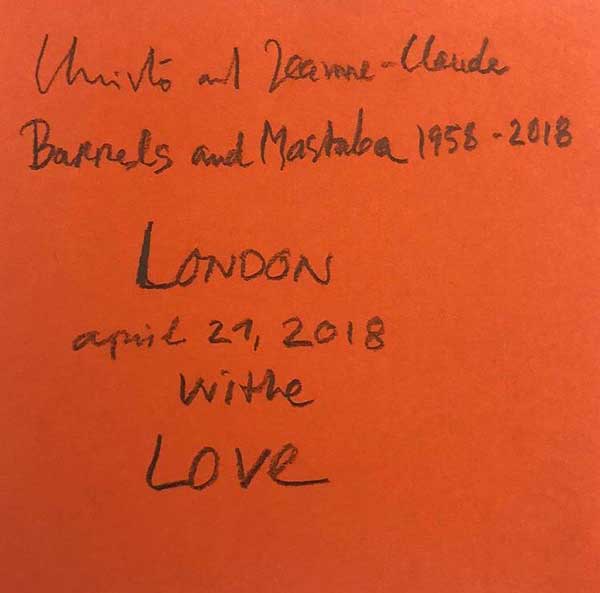 Christo and Jeanne-Claude
Barrels and Mastaba 1958 - 2018
LONDON
april 21, 2018
withe
Love